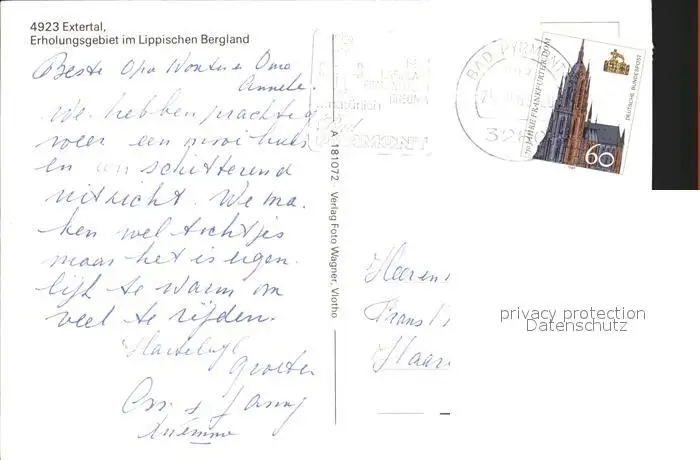 4923 Extertal,
Erholungsgebiet im Lippischen Bergland
Beste Opa Wouter Oma
Anneke.
We hebben prachtig
weer een mooi huis
en een schitterend
uitzicht. We ma-
ken wel tochtjes
maar het is eigen-
lijk te warm om
veel te rijden.
Hartelijke
groeten
Janny
A 181072 Verlag Foto Wagner, Vlotho
natürlich
Bad
PYRMONT
BAD PYRMONT
328
750 JAHRE FRANKFURTER DOM
DEUTSCHE BUNDESPOST
60
Heeren
Frans
Haar
privacy protection
Datenschutz